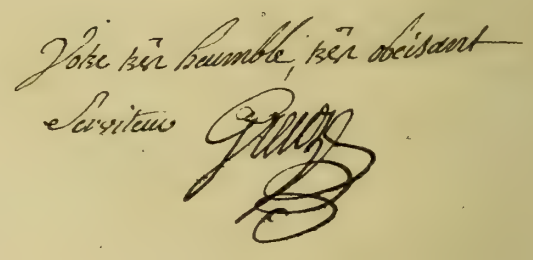 Votre très heumble, très obeisant
Serviteur Greuze